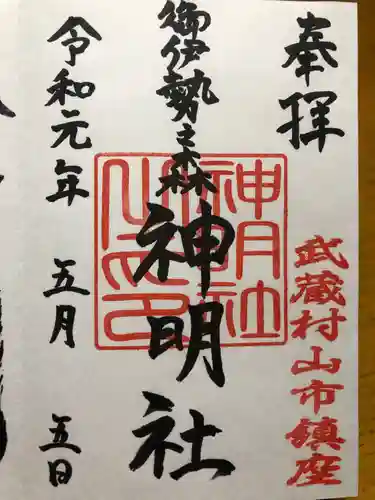 奉拝
武蔵村山市鎮座
御伊勢之森
神明社
神明社之印
令和元年 五月 五日